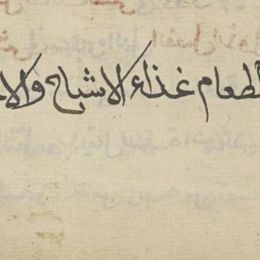 لطعام غذاء الاشباح والا